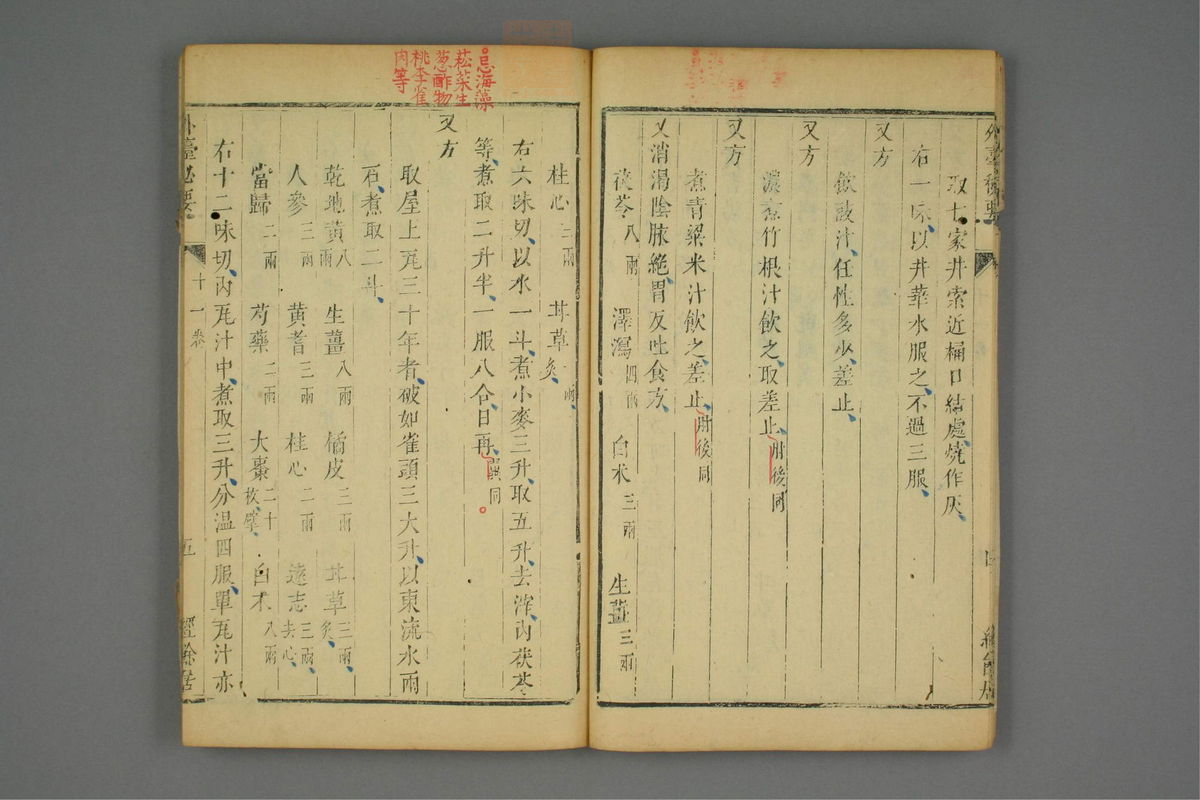 取七家井索近桶口結處燒作灰
右一味以井華水服之不過三服
又方
飲豉汁任性多少差止
又方
濃煮竹根汁飲之取差止肘後同
又方
煮青粱米汁飲之差止肘後同
又消渴陰脉絕胃反吐食方
茯苓八兩 澤瀉四兩 白朮三兩 生薑三兩
忌海藻
菘菜生
葱酢物
桃李雀
肉等
桂心三兩 甘草一兩炙
右六味切以水一斗煮小麥三升取五升去滓內茯苓
等煮取二升半一服八合日再
又方
取屋上瓦三十年者破如雀頭三大升以東流水兩
石煮取二斗
乾地黃八兩 生薑八兩 橘皮三兩 甘草三兩炙
人參三兩 黃耆三兩 桂心二兩 遠志三兩去心
當歸二兩 芍藥二兩 大棗二十枚擘 白朮八兩
右十二味切內瓦汁中煮取三升分溫四服單瓦汁亦
外臺秘要 十一卷 五 經餘居